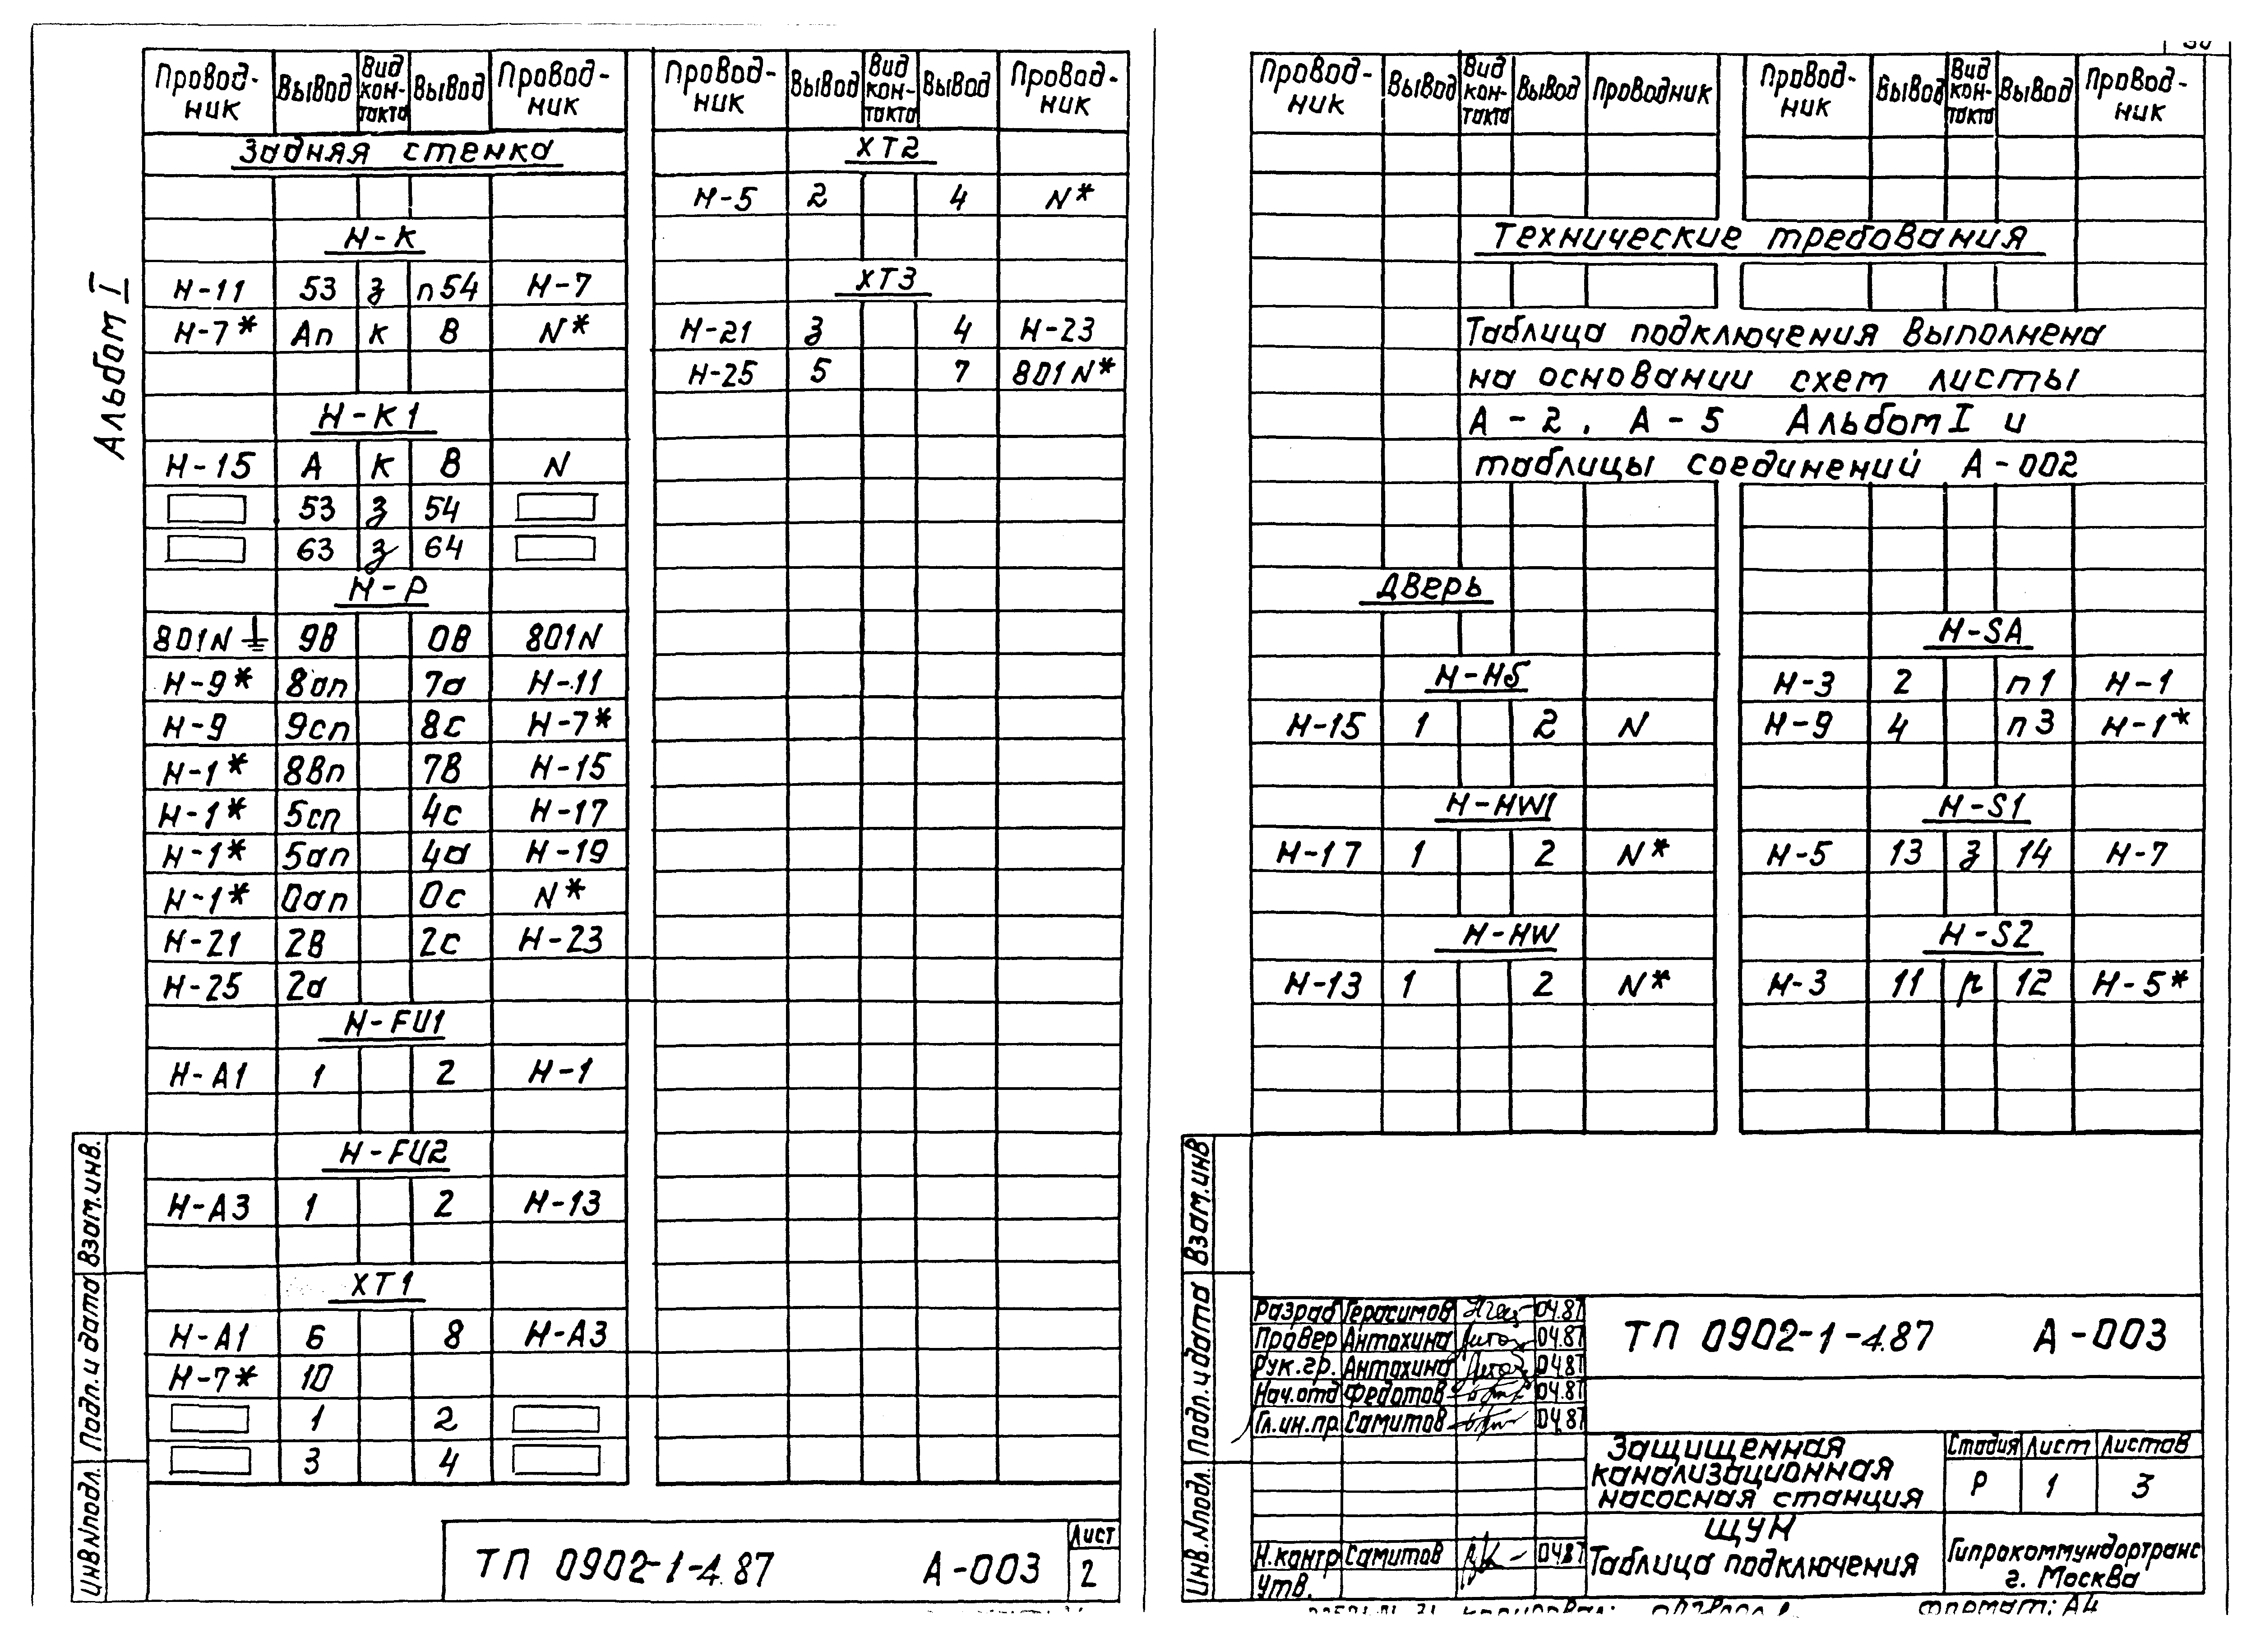 Альбом I
Провод-ник Вывод Вид кон-такта Вывод Провод-ник
Задняя стенка
Н-К
Н-11 53 з п54 Н-7
Н-7* Ап к В N*
Н-К1
Н-15 А к В N
53 з 54
63 з 64
Н-Р
801N ⏚ 9В 0В 801N
Н-9* 8ап 7а Н-11
Н-9 9сп 8с Н-7*
Н-1* 8Вп 7В Н-15
Н-1* 5сп 4с Н-17
Н-1* 5ап 4а Н-19
Н-1* 0ап 0с N*
Н-21 2В 2с Н-23
Н-25 2а
Н-FU1
Н-А1 1 2 Н-1
Н-FU2
Н-А3 1 2 Н-13
ХТ1
Н-А1 6 8 Н-А3
Н-7* 10
1 2
3 4
Провод-ник Вывод Вид кон-такта Вывод Провод-ник
ХТ2
Н-5 2 4 N*
ХТ3
Н-21 3 4 Н-23
Н-25 5 7 801N*
Взам.инв.
Подл. и дата
ИнВ.Nподл.
ТП 0902-1-4.87 А-003
Лист
2
Провод-ник Вывод Вид кон-такта Вывод Проводник
Провод-ник Вывод Вид кон-такта Вывод Провод-ник
Технические требования
Таблица подключения выполнена
на основании схем листы
А-2, А-5 Альбом I и
таблицы соединений А-002
Дверь
Н-НS
Н-15 1 2 N
Н-HW1
Н-17 1 2 N*
Н-HW
Н-13 1 2 N*
Н-SA
Н-3 2 п1 Н-1
Н-9 4 п3 Н-1*
Н-S1
Н-5 13 з 14 Н-7
Н-S2
Н-3 11 р 12 Н-5*
Взам.инв
Подл. и дата
ИнВ.Nподл.
Разраб Герасимов 04.87
Провер Антохина 04.87
Рук.гр. Антохина 04.87
Нач.отд Федотов 04.87
Гл.ин.пр Самитов 04.87
Н.контр Самитов 04.87
Утв.
ТП 0902-1-4.87 А-003
Защищенная
канализационная
насосная станция
Стадия Лист Листов
Р 1 3
ЩУН
Таблица подключения
Гипрокоммундортранс
г. Москва
Формат: А4